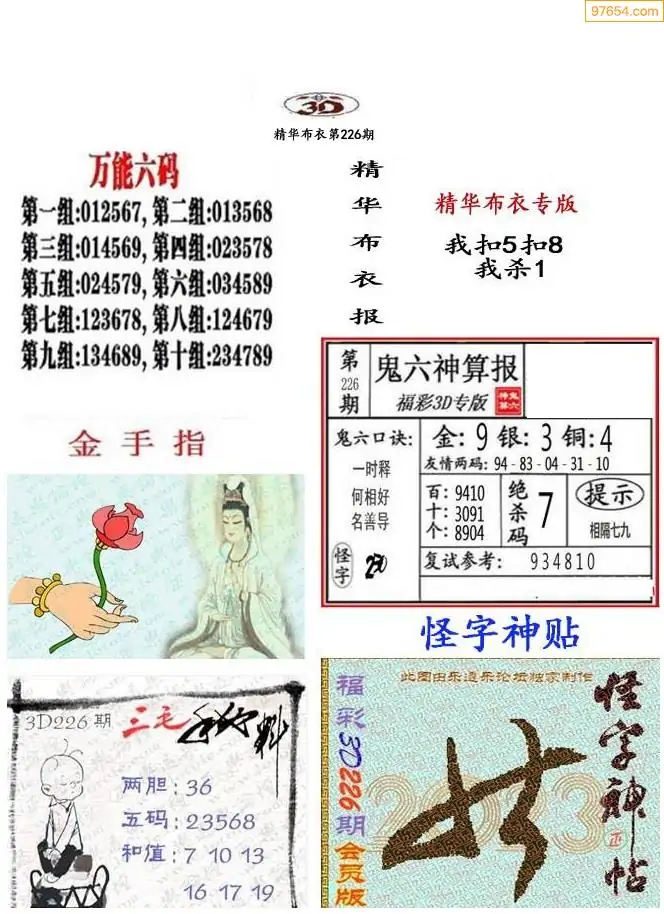 97654.com
3D
精华布衣第226期
万能六码
第一组:012567, 第二组:013568
第三组:014569, 第四组:023578
第五组:024579, 第六组:034589
第七组:123678, 第八组:124679
第九组:134689, 第十组:234789
精华布衣报
精华布衣专版
我扣5扣8
我杀1
金手指
第226期
鬼六神算报
福彩3D专版
鬼六口诀:
一时释
何相好
名善导
怪字
金: 9 银: 3 铜: 4
友情两码: 94 - 83 - 04 - 31 - 10
百: 9410
十: 3091
个: 8904
绝杀码 7
提示
相隔七九
复试参考: 934810
怪字神贴
3D226期
三毛
两胆: 36
五码: 23568
和值: 7 10 13
16 17 19
此图由乐逍乐论坛独家制作
福彩3D226期会员版
怪字神帖
2023